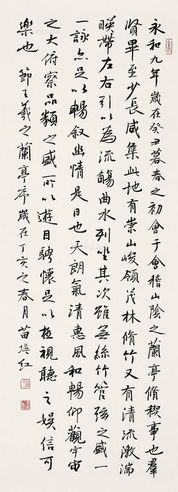 永和九年歲在癸丑暮春之初會于會稽山陰之蘭亭脩稧事也羣
賢畢至少長咸集此地有崇山峻領茂林脩竹又有清流激湍
暎帶左右引以為流觴曲水列坐其次雖無絲竹管弦之盛一
一詠亦足以暢叙幽情是日也天朗氣清惠風和暢仰觀宇宙
之大俯察品類之盛所以遊目騁懷足以極視聽之娛信可
樂也 節王羲之蘭亭序歲在丁亥之春月苗培红